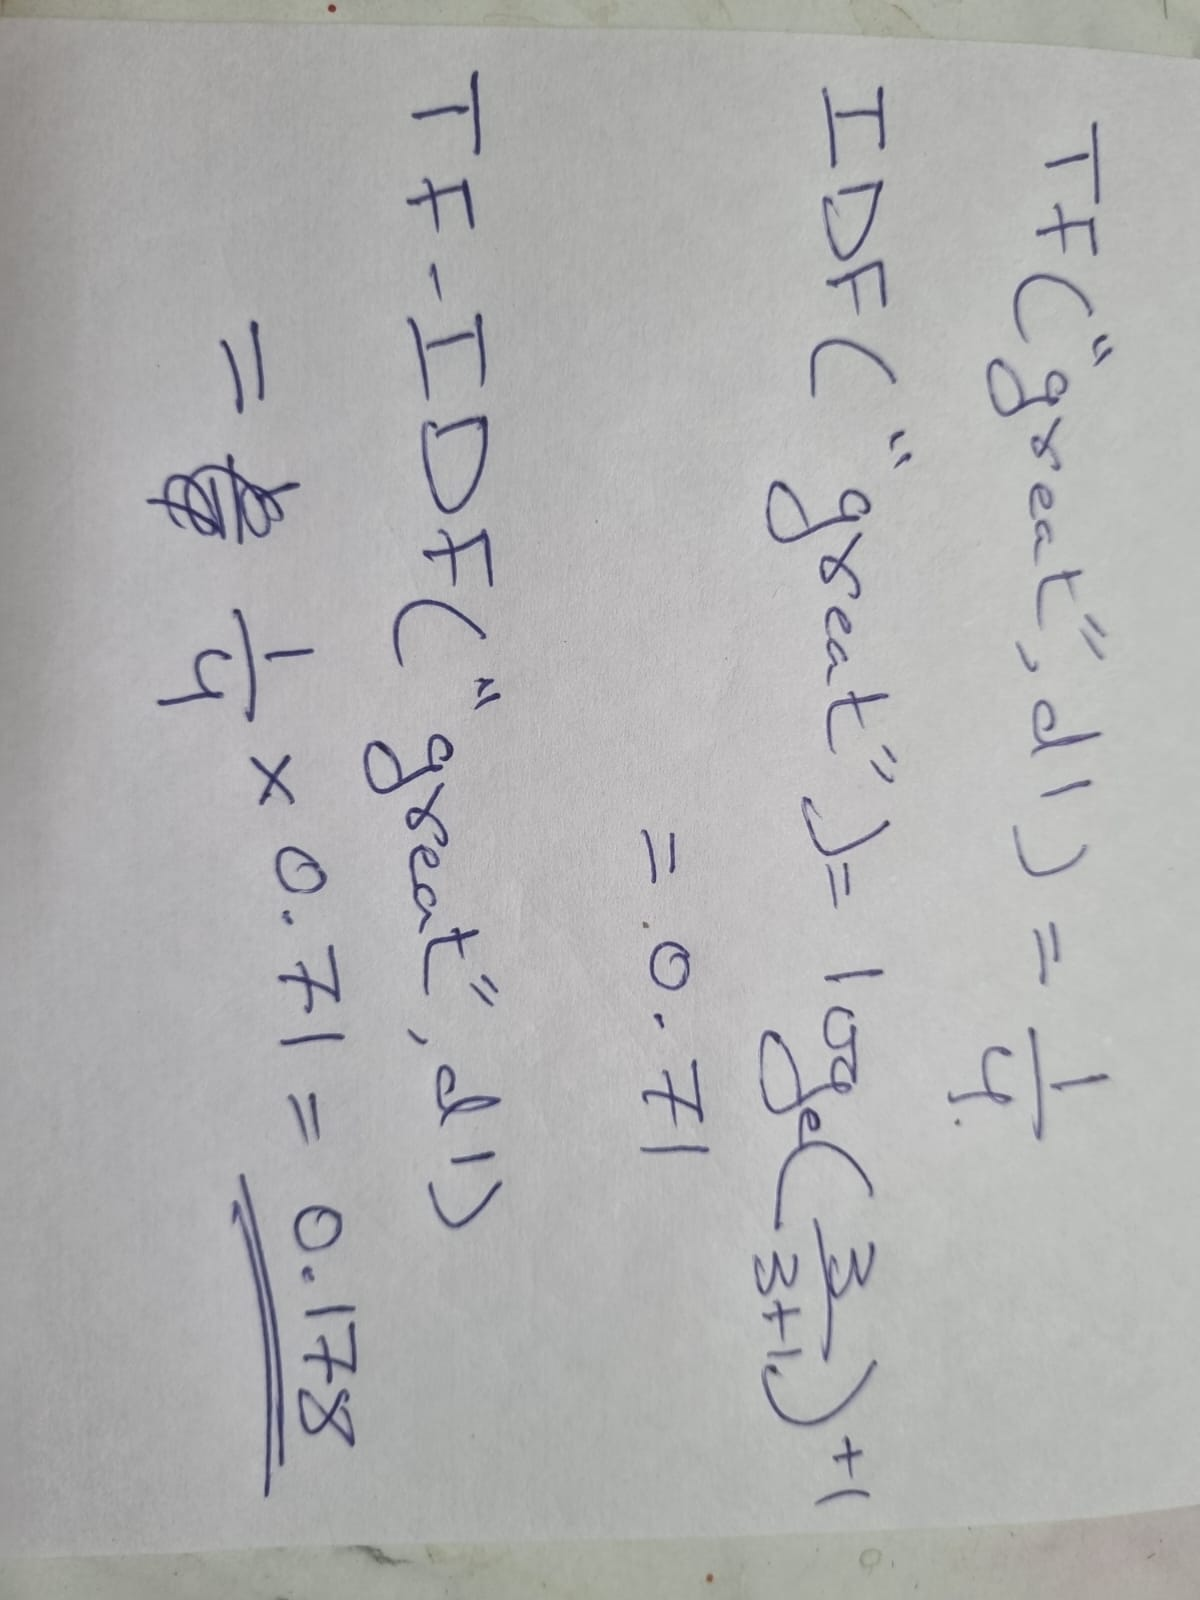 TF("great", d1) = 1/4
IDF("great") = loge(3/3+1) + 1
= 0.71
TF-IDF("great", d1)
= 1/4 x 0.71 = 0.178